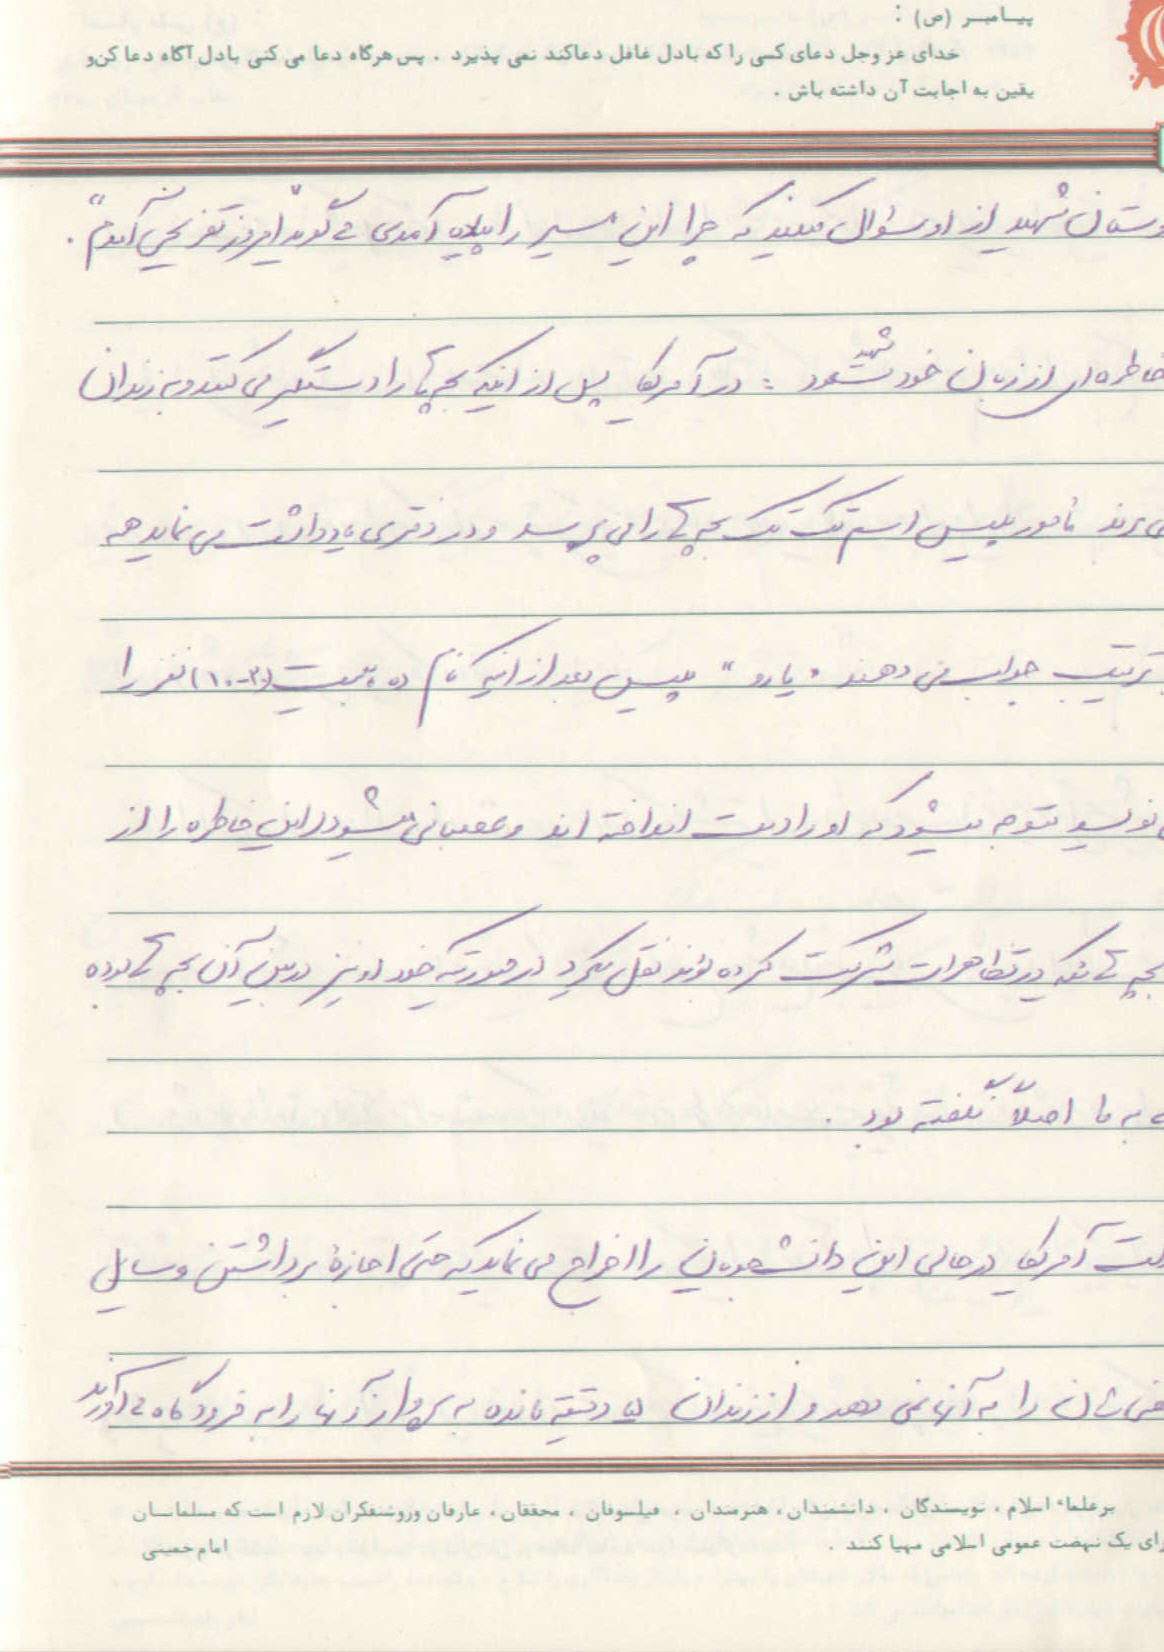 پیـامبـر (ص) :
خدای عز وجل دعای کسی را که بادل غافل دعاکند نمی پذیرد . پس هرگاه دعا می کنی بادل آگاه دعا کن‌و
یقین به اجابت آن داشته باش .
وستان شهید از او سؤال میکنند که چرا این مسیر را پیاده آمدی می گوید "امروز تفریحی آمدم" .
خاطره ای از زبان خود شهید : در آمریکا پس از اینکه بچه ها را دستگیر می کنند و به زندان
می برند مأمور پلیس اسم تک تک بچه ها را می پرسد و در دفتری یادداشت می نماید همه
ترتیب جواب می دهند "یارو" پلیس بعد از اینکه نام ده بیست (۲۰-۱۰) نفر را
نویسد متوجه میشود که او را دست انداخته اند و عصبانی میشود این خاطره را از
بچه هائیکه در تظاهرات شرکت کرده بودند نقل میکرد در صورتیکه خود او نیز در بین آن بچه ها بوده
به ما اصلاً نگفته بود .
لت آمریکا در حالی این دانشجویان را اخراج می نماید که حتی اجازۀ برداشتن وسایل
شان را به آنها نمی دهد و از زندان دقیقه مانده به پرواز آنها را به فرودگاه می آورند
برعلماء اسلام ، نویسندگان ، دانشمندان ، هنرمندان ، فیلسوفان ، محققان ، عارفان وروشنفکران لازم است که مسلمانـان
رای یک نهضت عمومی اسلامی مهیا کنند .
امام خمینی